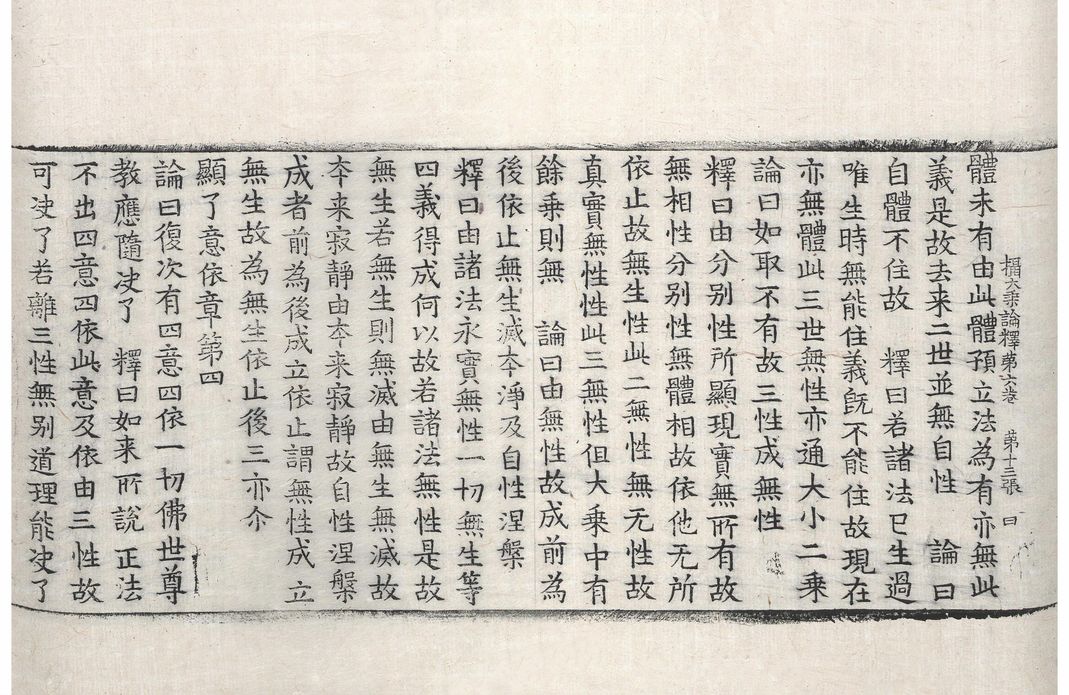 攝大乗論釋苐六卷 苐十三張 曰
體未有由此體預立法為有亦無此
義是故去来二世並無自性 論曰
自體不住故 釋曰若諸法已生過
唯生時無能住義旣不能住故現在
亦無體此三世無性亦通大小二乗
論曰如取不有故三性成無性
釋曰由分别性所顯現實無所有故
無相性分别性無體相故依他无所
依止故無生性此二無性無无性故
真實無性性此三無性但大乗中有
餘乗則無 論曰由無性故成前為
後依止無生滅夲淨及自性涅槃
釋曰由諸法永實無性一切無生等
四義得成何以故若諸法無性是故
無生若無生則無滅由無生無滅故
夲来寂靜由夲来寂靜故自性涅槃
成者前為後成立依止謂無性成立
無生故為無生依止後三亦尒
顯了意依章苐四
論曰復次有四意四依一切佛世尊
教應隨决了 釋曰如来所說正法
不出四意四依此意及依由三性故
可决了若離三性無别道理能决了